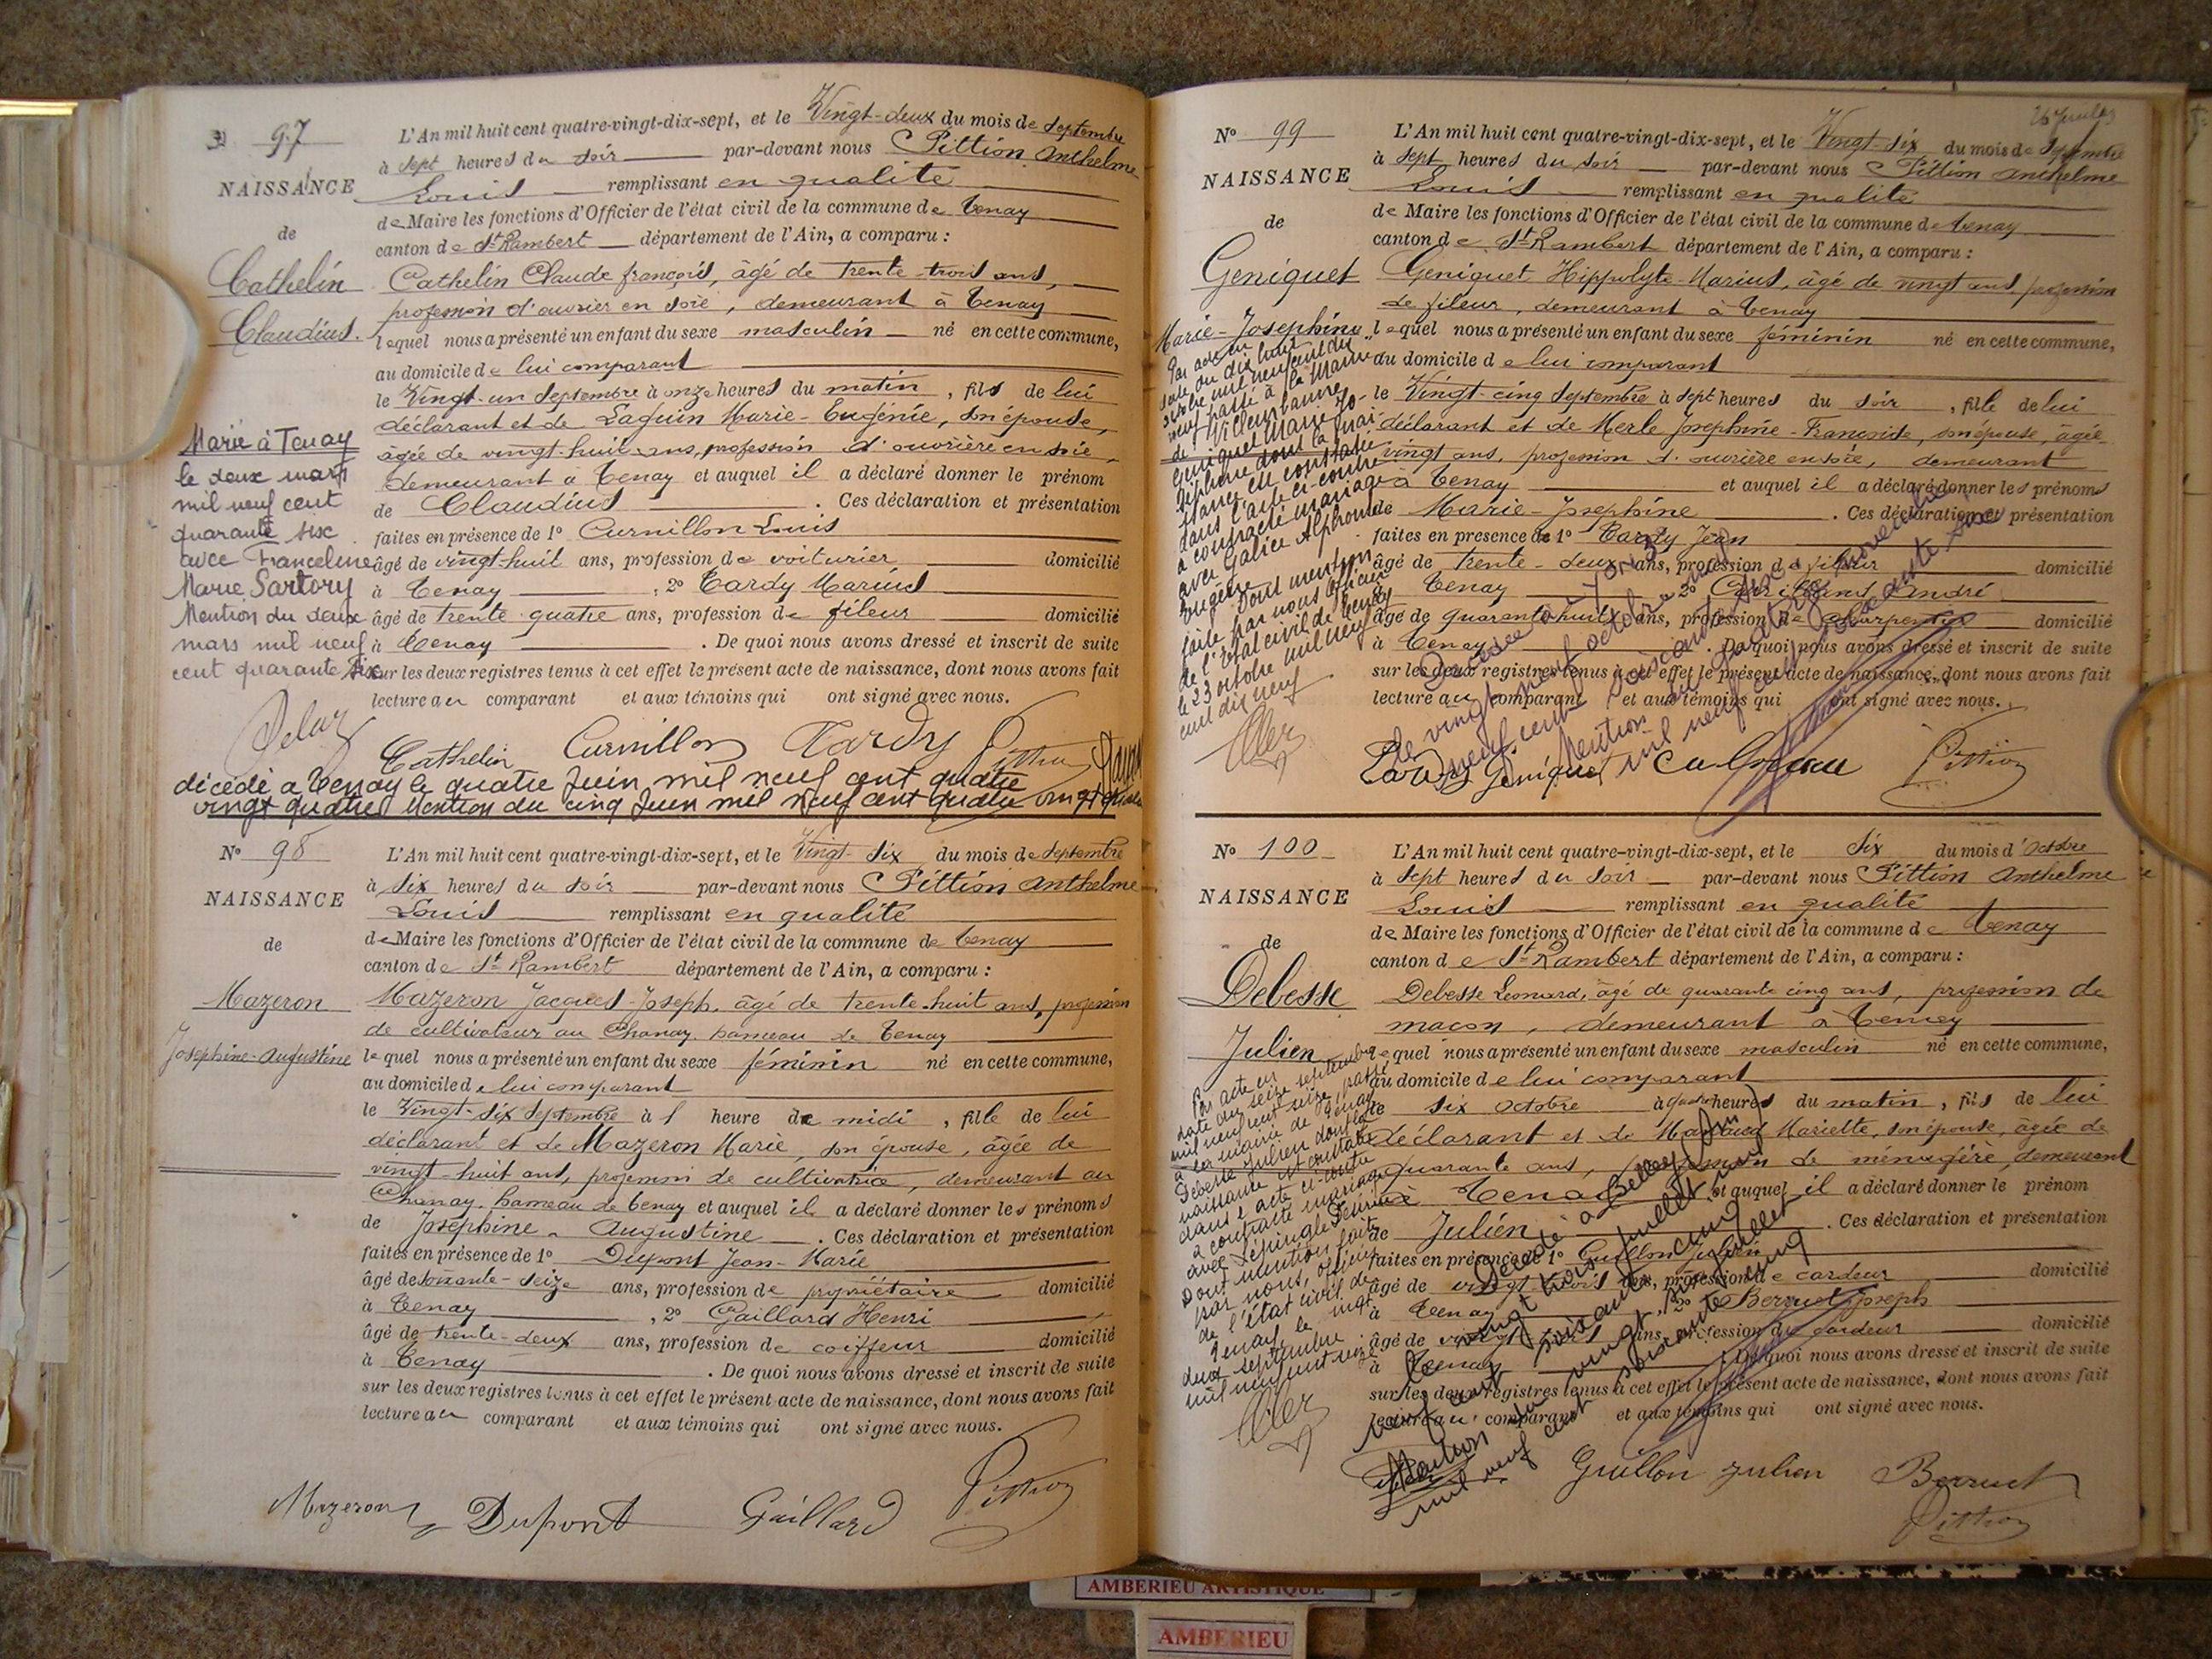 97
NAISSANCE
de
Cathelin
Claudius.
L'An mil huit cent quatre-vingt-dix-sept, et le Vingt-deux du mois de Septembre
à sept heures du soir par-devant nous Pittion Anthelme
Louis remplissant en qualité
de Maire les fonctions d'Officier de l'état civil de la commune de Tenay
canton de St Rambert département de l'Ain, a comparu :
Cathelin Claude françois, âgé de trente-trois ans,
profession d'ouvrier en soie, demeurant à Tenay
lequel nous a présenté un enfant du sexe masculin né en cette commune,
au domicile de lui comparant
le Vingt-un Septembre à onze heures du matin, fils de lui
déclarant et de Laguin Marie-Eugénie, son épouse,
âgée de vingt-huit ans, profession d'ouvrière en soie,
demeurant à Tenay et auquel il a déclaré donner le prénom
de Claudius . Ces déclaration et présentation
faites en présence de 1º Curnillon Louis
âgé de vingt-huit ans, profession de voiturier domicilié
à Tenay , 2º Tardy Marius
âgé de trente quatre ans, profession de fileur domicilié
à Tenay . De quoi nous avons dressé et inscrit de suite
sur les deux registres tenus à cet effet le présent acte de naissance, dont nous avons fait
lecture au comparant et aux témoins qui ont signé avec nous.
Marié à Tenay
le deux mars
mil neuf cent
quarante six
avec Franceline
Marie Sartory
Mention du deux
mars mil neuf
cent quarante six
Cathelin Curnillon Tardy Pittion
décédé à Tenay le quatre Juin mil neuf cent quatre
vingt quatre Mention du cinq Juin mil neuf cent quatre vingt quatre
Nº 98
NAISSANCE
de
Mazeron
Josephine-Augustine
L'An mil huit cent quatre-vingt-dix-sept, et le Vingt-six du mois de Septembre
à six heures du soir par-devant nous Pittion Anthelme
Louis remplissant en qualité
de Maire les fonctions d'Officier de l'état civil de la commune de Tenay
canton de St Rambert département de l'Ain, a comparu :
Mazeron Jacques-Joseph, âgé de trente-huit ans, profession
de cultivateur au Chanay hameau de Tenay
lequel nous a présenté un enfant du sexe féminin né en cette commune,
au domicile de lui comparant
le Vingt-six Septembre à 1 heure de midi, fille de lui
déclarant et de Mazeron Marie, son épouse, âgée de
vingt-huit ans, profession de cultivatrice, demeurant au
Chanay, hameau de Tenay et auquel il a déclaré donner les prénoms
de Josephine-Augustine . Ces déclaration et présentation
faites en présence de 1º Dupont Jean-Marie
âgé de soixante-seize ans, profession de propriétaire domicilié
à Tenay , 2º Gaillard Henri
âgé de trente-deux ans, profession de coiffeur domicilié
à Tenay . De quoi nous avons dressé et inscrit de suite
sur les deux registres tenus à cet effet le présent acte de naissance, dont nous avons fait
lecture au comparant et aux témoins qui ont signé avec nous.
Mazeron Dupont Gaillard Pittion
Nº 99
NAISSANCE
de
Geniquet
Marie-Josephine
L'An mil huit cent quatre-vingt-dix-sept, et le Vingt-six du mois de Septembre
à sept heures du soir par-devant nous Pittion Anthelme
Louis remplissant en qualité
de Maire les fonctions d'Officier de l'état civil de la commune de Tenay
canton de St Rambert département de l'Ain, a comparu :
Geniquet Hippolyte-Marius, âgé de vingt ans, profession
de fileur, demeurant à Tenay
lequel nous a présenté un enfant du sexe féminin né en cette commune,
au domicile de lui comparant
le Vingt-cinq Septembre à sept heures du soir, fille de lui
déclarant et de Merle Josephine-Françoise, son épouse, âgée
vingt ans, profession d'ouvrière en soie, demeurant
à Tenay et auquel il a déclaré donner les prénoms
de Marie-Josephine . Ces déclaration et présentation
faites en présence de 1º Tardy Jean
âgé de trente-deux ans, profession de fileur domicilié
à Tenay 2º André
âgé de quarante huit ans, profession de charpentier domicilié
à Tenay . De quoi nous avons dressé et inscrit de suite
sur les deux registres tenus à cet effet le présent acte de naissance, dont nous avons fait
lecture au comparant et aux témoins qui ont signé avec nous.
Par acte en
date du dix huit
octobre mil neuf cent dix
neuf passé à la Mairie
de Villeurbanne
Geniquet Marie Jo-
séphine dont la nais-
sance est constatée
dans l'acte ci-contre
a contracté mariage
avec Galice Alphonse
Eugène. Dont mention
faite par nous officier
de l'état civil de Tenay
le 23 octobre mil neuf
cent dix neuf
Décédée à Lyon
le vingt neuf octobre mil
neuf cent soixante six
Mention du quatre novembre
mil neuf cent soixante six
Tardy Geniquet Pittion
Nº 100
NAISSANCE
de
Debesse
Julien
L'An mil huit cent quatre-vingt-dix-sept, et le six du mois d'Octobre
à sept heures du soir par-devant nous Pittion Anthelme
Louis remplissant en qualité
de Maire les fonctions d'Officier de l'état civil de la commune de Tenay
canton de St Rambert département de l'Ain, a comparu :
Debesse Leonard, âgé de quarante cinq ans, profession de
maçon, demeurant à Tenay
lequel nous a présenté un enfant du sexe masculin né en cette commune,
au domicile de lui comparant
le six Octobre à quatre heures du matin, fils de lui
déclarant et de Mariette, son épouse, âgée de
quarante ans, profession de ménagère, demeurant
à Tenay et auquel il a déclaré donner le prénom
de Julien . Ces déclaration et présentation
faites en présence de 1º Guillon Julien
âgé de vingt trois ans, profession de cardeur domicilié
à Tenay , 2º Berruet Joseph
âgé de vingt ans, profession de cardeur domicilié
à Tenay . De quoi nous avons dressé et inscrit de suite
sur les deux registres tenus à cet effet le présent acte de naissance, dont nous avons fait
lecture au comparant et aux témoins qui ont signé avec nous.
Par acte en
date du seize septembre
mil neuf cent seize, passé
à la mairie de Tenay
Debesse Julien dont la
naissance est constatée
dans l'acte ci-contre
a contracté mariage
avec
Dont mention faite
par nous, officier
de l'état civil de
Tenay le vingt
deux septembre
mil neuf cent seize
Décédé à Belley (Ain)
le vingt trois juillet mil
neuf cent soixante cinq
Mention du vingt juillet
mil neuf cent soixante cinq
Guillon Julien Berruet
Pittion
AMBERIEU ARTISTIQUE
AMBERIEU